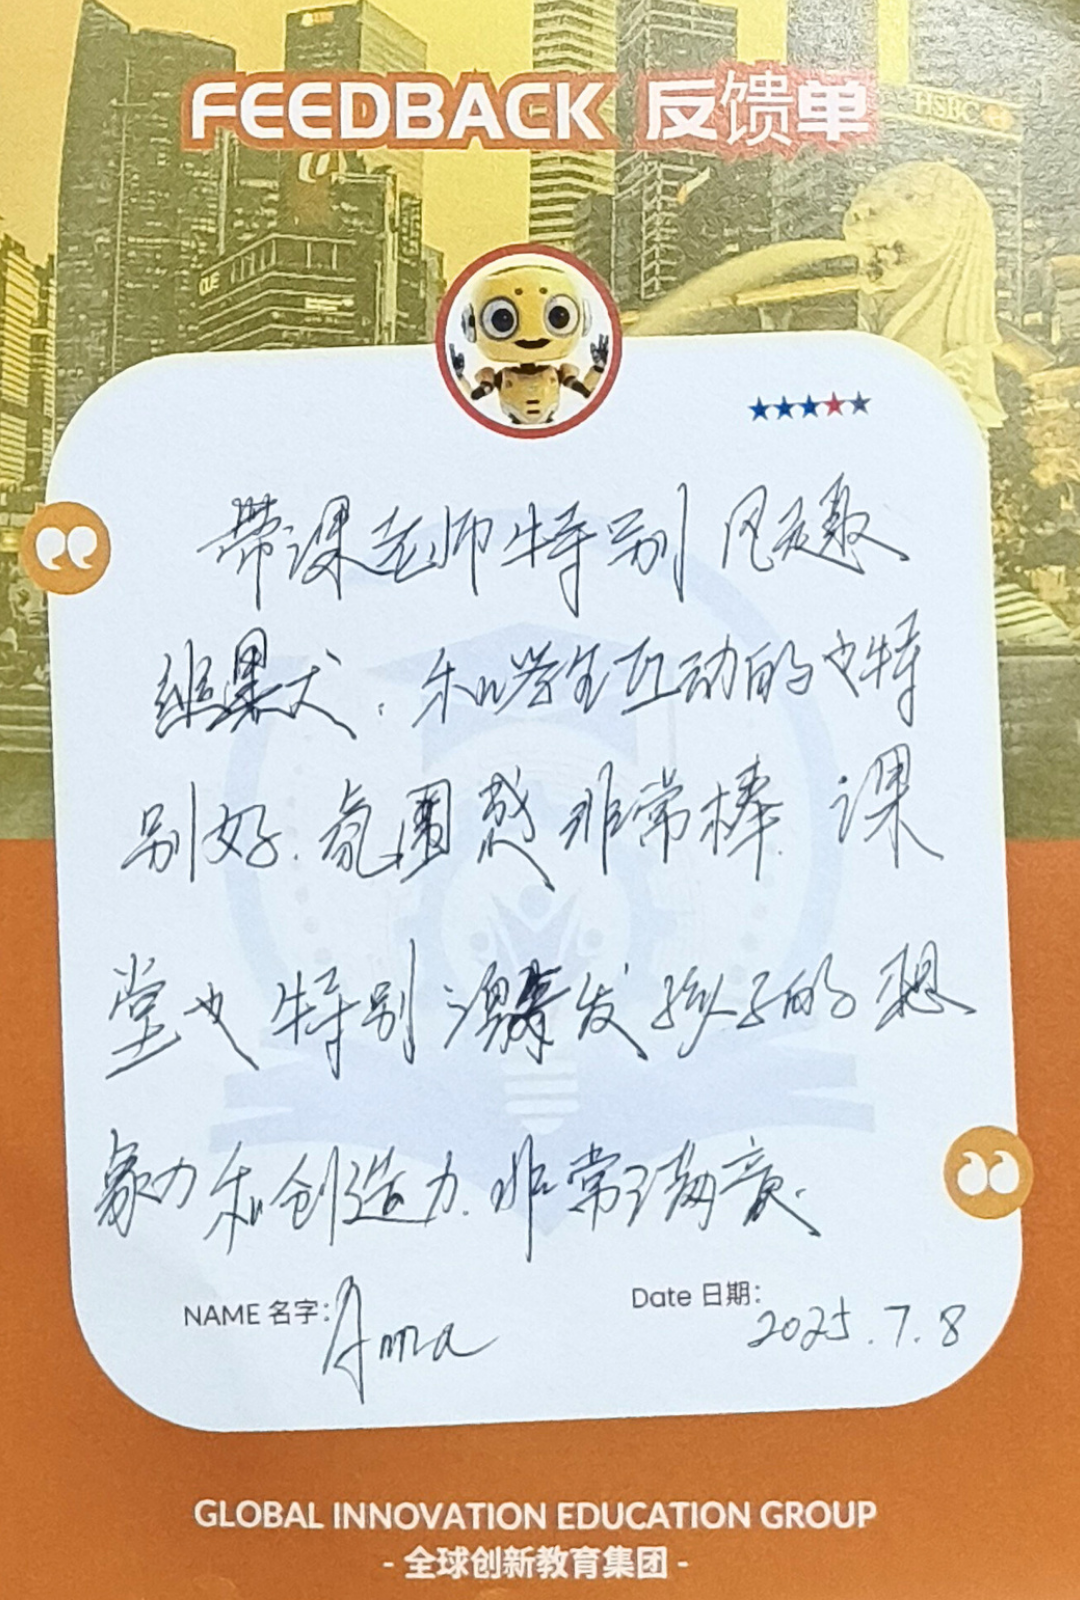 FEEDBACK 反馈单
HSBC
OUE
带课老师特别风趣
幽默，和学生互动的也特
别好.氛围感非常棒.课
堂也特别激发孩子的想
象力和创造力.非常满意.
NAME 名字: Anna
Date 日期: 2025.7.8
GLOBAL INNOVATION EDUCATION GROUP
- 全球创新教育集团 -